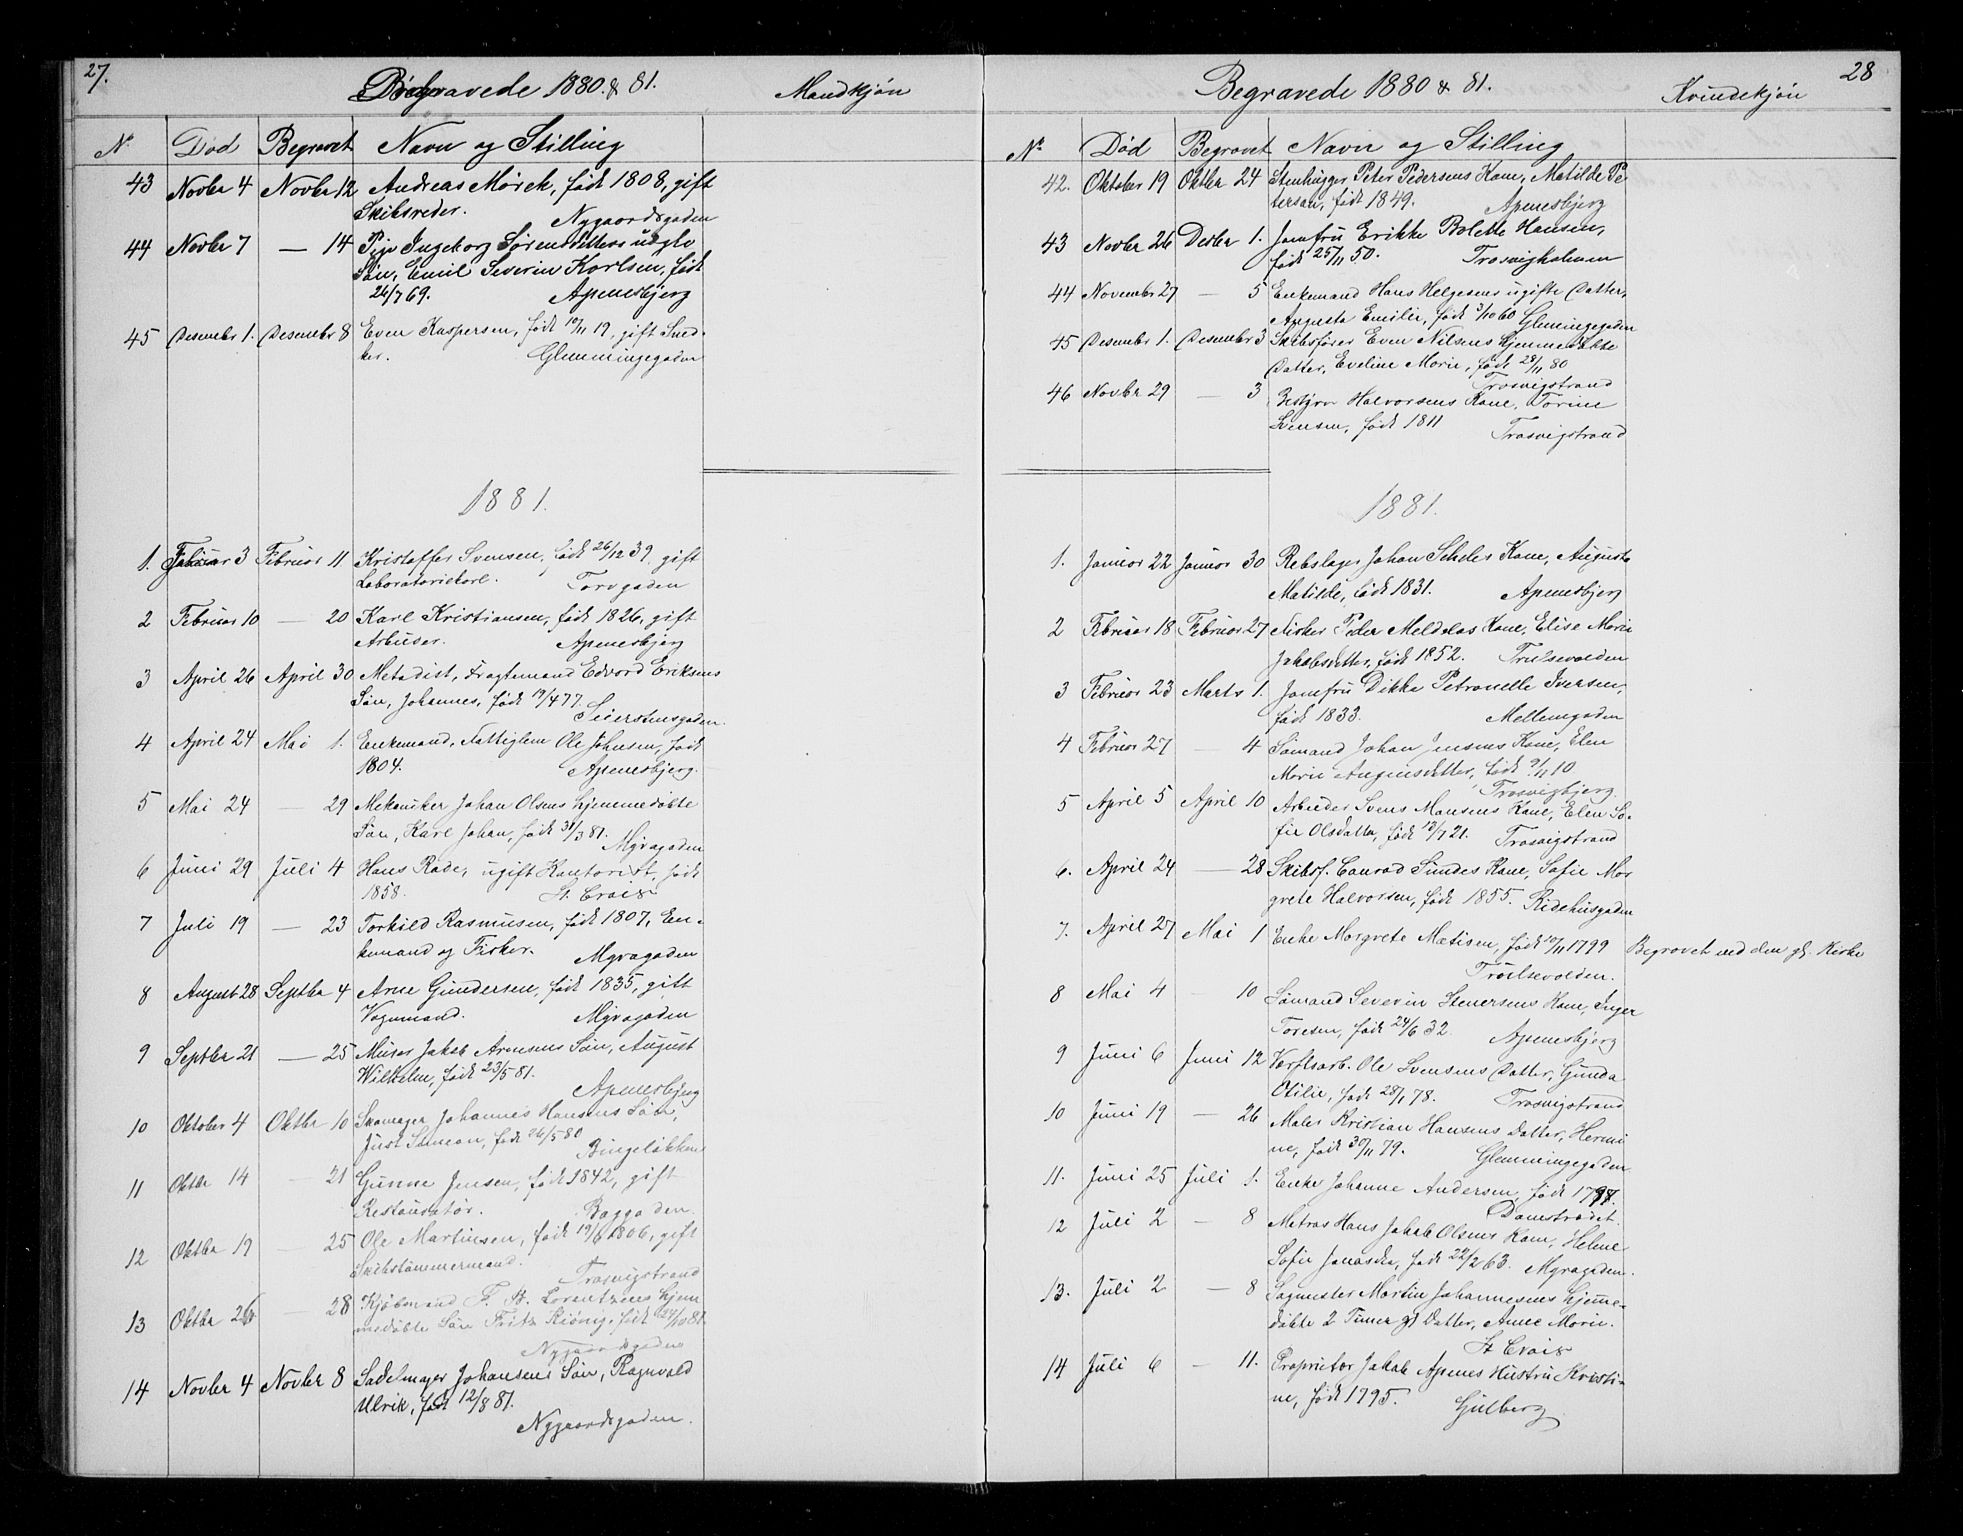 27.
Begravede 1880 & 81.
Mandkjøn
N. Død Begravet Navn og Stilling
43 Novbr 4 Novbr 12 Andreas Mörck, født 1808, gift
Skibsreder. Nygaardsgaden
44 Novbr 7 — 14 Pige Ingeborg Sörensdatters uægte
Sön, Emil Severin Karlsen, født
26/7 69. Apenesbjerg
45 Desembr 1. Desembr 8 Even Kaspersen, født 10/11 19, gift Sned-
ker. Glemmingegaden
1881.
1. Februar 3 Februar 11 Kristoffer Svensen, født 26/12 39, gift
Laboratoriekarl. Torvgaden
2 Februar 10 — 20 Karl Kristiansen, født 1826, gift
Arbeider. Apenesbjerg
3 April 26 April 30 Metodist, Fragtemand Edvard Eriksens
Sön, Johannes, født 19/4 77.
Seierstensgaden.
4 April 24 Mai 1. Enkemand, Fattiglem Ole Johnsen, født
1804. Apenesbjerg.
5 Mai 24 — 29 Mekaniker Johan Olsens hjemmedøbte
Sön, Karl Johan, født 31/3 81. Myragaden
6 Juni 29 Juli 4 Hans Rade, ugift Kontorist, født
1858. St. Croix
7 Juli 19 — 23 Torkild Rasmusen, født 1807, En-
kemand og Fisker. Myragaden
8 August 28 Septbr 4 Arne Gundersen, født 1835, gift
Vognmand. Myragaden
9 Septbr 21 — 25 Murer Jakob Arnesens Sön, August
Wilhelm, født 23/5 81.
Apenesbjerg
10 Oktober 4 Oktbr 10 Skomager Johannes Hansens Sön,
Just Simeon, født 26/5 80
Bingeløkken
11 Oktbr 14 — 21 Gunne Jensen, født 1842, gift
Restauratør. Baggaden.
12 Oktbr 19 — 25 Ole Martinsen, født 19/6 1806, gift
Skibstømmermand.
Trosvigstrand
13 Oktbr 26 — 28 Kjøbmand F. St. Lorentzens hjem
medøbte Sön Fritz Kiönig, født 24/10 81.
Nygaardsgaden
14 Novbr 4 Novbr 8 Sadelmager Johansens Sön, Ragnvald
Ulrik, født 12/8 81.
Nygaardsgaden.
28
Begravede 1880 & 81.
Kvindekjøn
Nr. Død Begravet Navn og Stilling
42. Oktober 19 Oktbr 24 Stenhugger Peter Pedersens Kone, Matilde Pe
tersen, født 1849. Apenesbjerg
43 Novbr 26 Desbr 1. Jomfru Erikke Bolette Hansen,
født 25/11 50. Trosvigholmen
44 Novembr 27 — 5 Enkemand Hans Helgesens ugifte Datter,
Augusta Emilie, født 3/10 60 Glemmingegaden
45 Desembr 1. Desembr 3 Skibsfører Even Nilsens hjemmedøbte
Datter, Eveline Marie, født 28/11 80
Trosvigstrand
46 Novbr 29 — 3 Halvorsens Kone, Torine
Svensen, født 1811 Trosvigstrand
1881.
1. Januar 22 Januar 30 Rebslager Johan Kone, Augusta
Matilde, født 1831. Apenesbjerg
2 Februar 18 Februar 27 Fisker Peder Kone, Elise Marie
Jakobsdatter, født 1852. Trulsevolden
3 Februar 23 Marts 1. Jomfru Dikka Petronelle Iversen,
født 1833. Mellemgaden
4 Februar 27 — 4 Sömand Johan Jensens Kone, Elen
Marie Augensdatter, født 9/11 10
Trosvigbjerg.
5 April 5 April 10 Arbeider Svens Monsens Kone, Elen So-
fie Olsdatter, født 13/7 21. Trosvigstrand
6. April 24 — 28 Skibsf. Conrad Sundes Kone, Sofie Mar
grete Halvorsen, født 1855. Ridehusgaden
7. April 27 Mai 1 Enke Margrete Matisen, født 10/11 1799 Begravet ved den gl. Kirke
Trulsevolden.
8 Mai 4 — 10 Sömand Severin Stenersens Kone, Inger
Toresen, født 24/6 32. Apenesbjerg
9 Juni 6 Juni 12 Verftsarb. Ole Svensens Datter, Gunda
Otilie, født 28/1 78. Trosvigstrand
10 Juni 19 — 26 Maler Kristian Hansens Datter, Hermi
ne, født 30/11 79. Glemmingegaden
11. Juni 25 Juli 1. Enke Johanne Andersen, født 1797.
Damstrædet.
12 Juli 2 — 8 Matros Hans Jakob Olsens Kone, Helene
Sofie Jonasdtr, født 22/2 63. Myragaden.
13. Juli 2 — 8 Sagmester Martin Johannesens hjemme-
døbte 2 Timer gl Datter, Anne Marie.
St Croix
14 Juli 6 — 11. Proprietør Jakob Apenes Hustru Kristi-
ne, født 1795. Gulberg